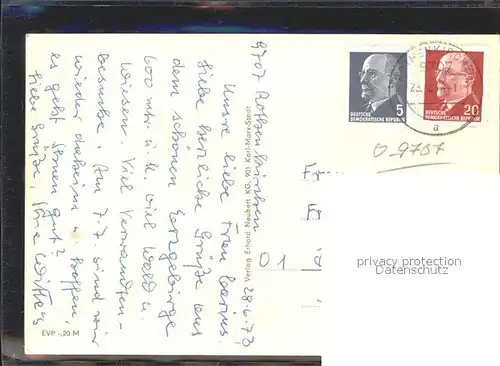 9707 Rothenkirchen
28.6.73
Unsre liebe Frau
Liebe herzliche Grüße aus
dem schönen Erzgebirge
600 mtr. ü. M. viel Wald u.
Wiesen. Viel Verwandten-
besuche. Am 7.7. sind wir
wieder daheim u. hoffen,
es geht Ihnen gut?
Liebe Grüße, Ihre
Verlag Erhard Neubert KG, 901 Karl-Marx-Stadt
EVP -,20 M
5
DEUTSCHE
DEMOKRATISCHE REPUBLIK
20
DEUTSCHE
DEMOKRATISCHE REPUBLIK
9707
a
O_9707
01
privacy protection
Datenschutz